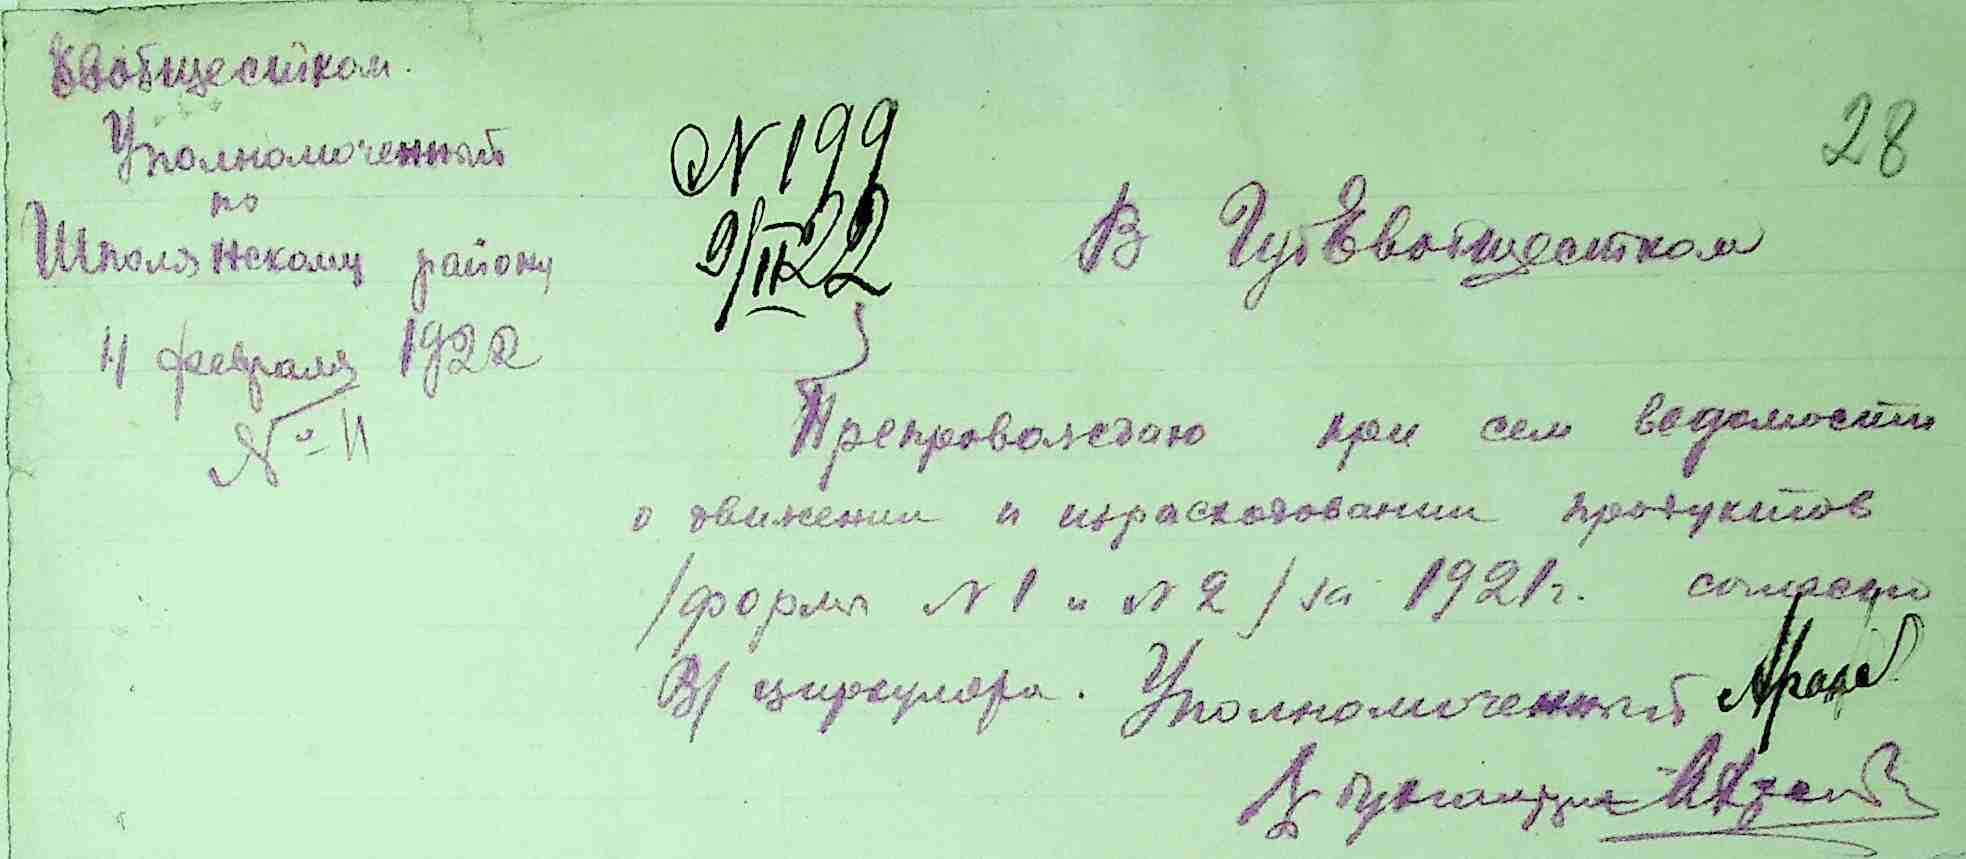 Евобщестком.
Уполномоченный
по
Шполянскому району
4 февраля 1922
№ 11
N 199
9/II 22
28
В ГубЕвобщестком
Препровождаю при сем ведомости
о движении и израсходовании продуктов
/форма N 1 и N 2/ за 1921 г. согласно
В/ циркуляра. Уполномоченный